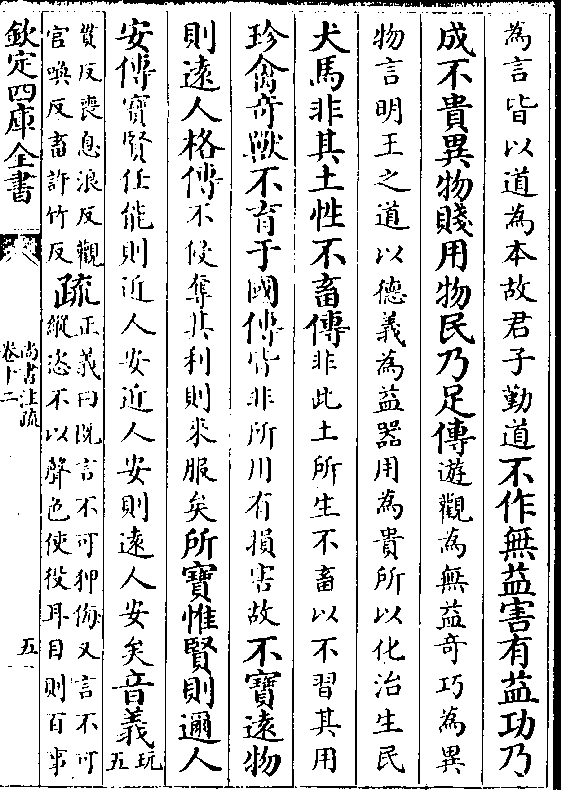 為言皆以道為本故君子勤道不作無益害有益功乃
成不貴異物賤用物民乃足傳遊觀為無益奇巧為異
物言明王之道以德義為益器用為貴所以化治生民
犬馬非其土性不畜傳非此土所生不畜以不習其用
珍禽奇獸不育于國傳皆非所用有損害故不寳遠物
則遠人格傳不侵奪其利則來服矣所寳惟賢則邇人
安傳寳賢任能則近人安近人安則遠人安矣音義玩五
貫反喪息浪反觀
官喚反畜許竹反
疏正義曰既言不可狎侮又言不可
縱恣不以聲色使役耳目則百事
欽定四庫全書
尚書注疏
卷十二
五